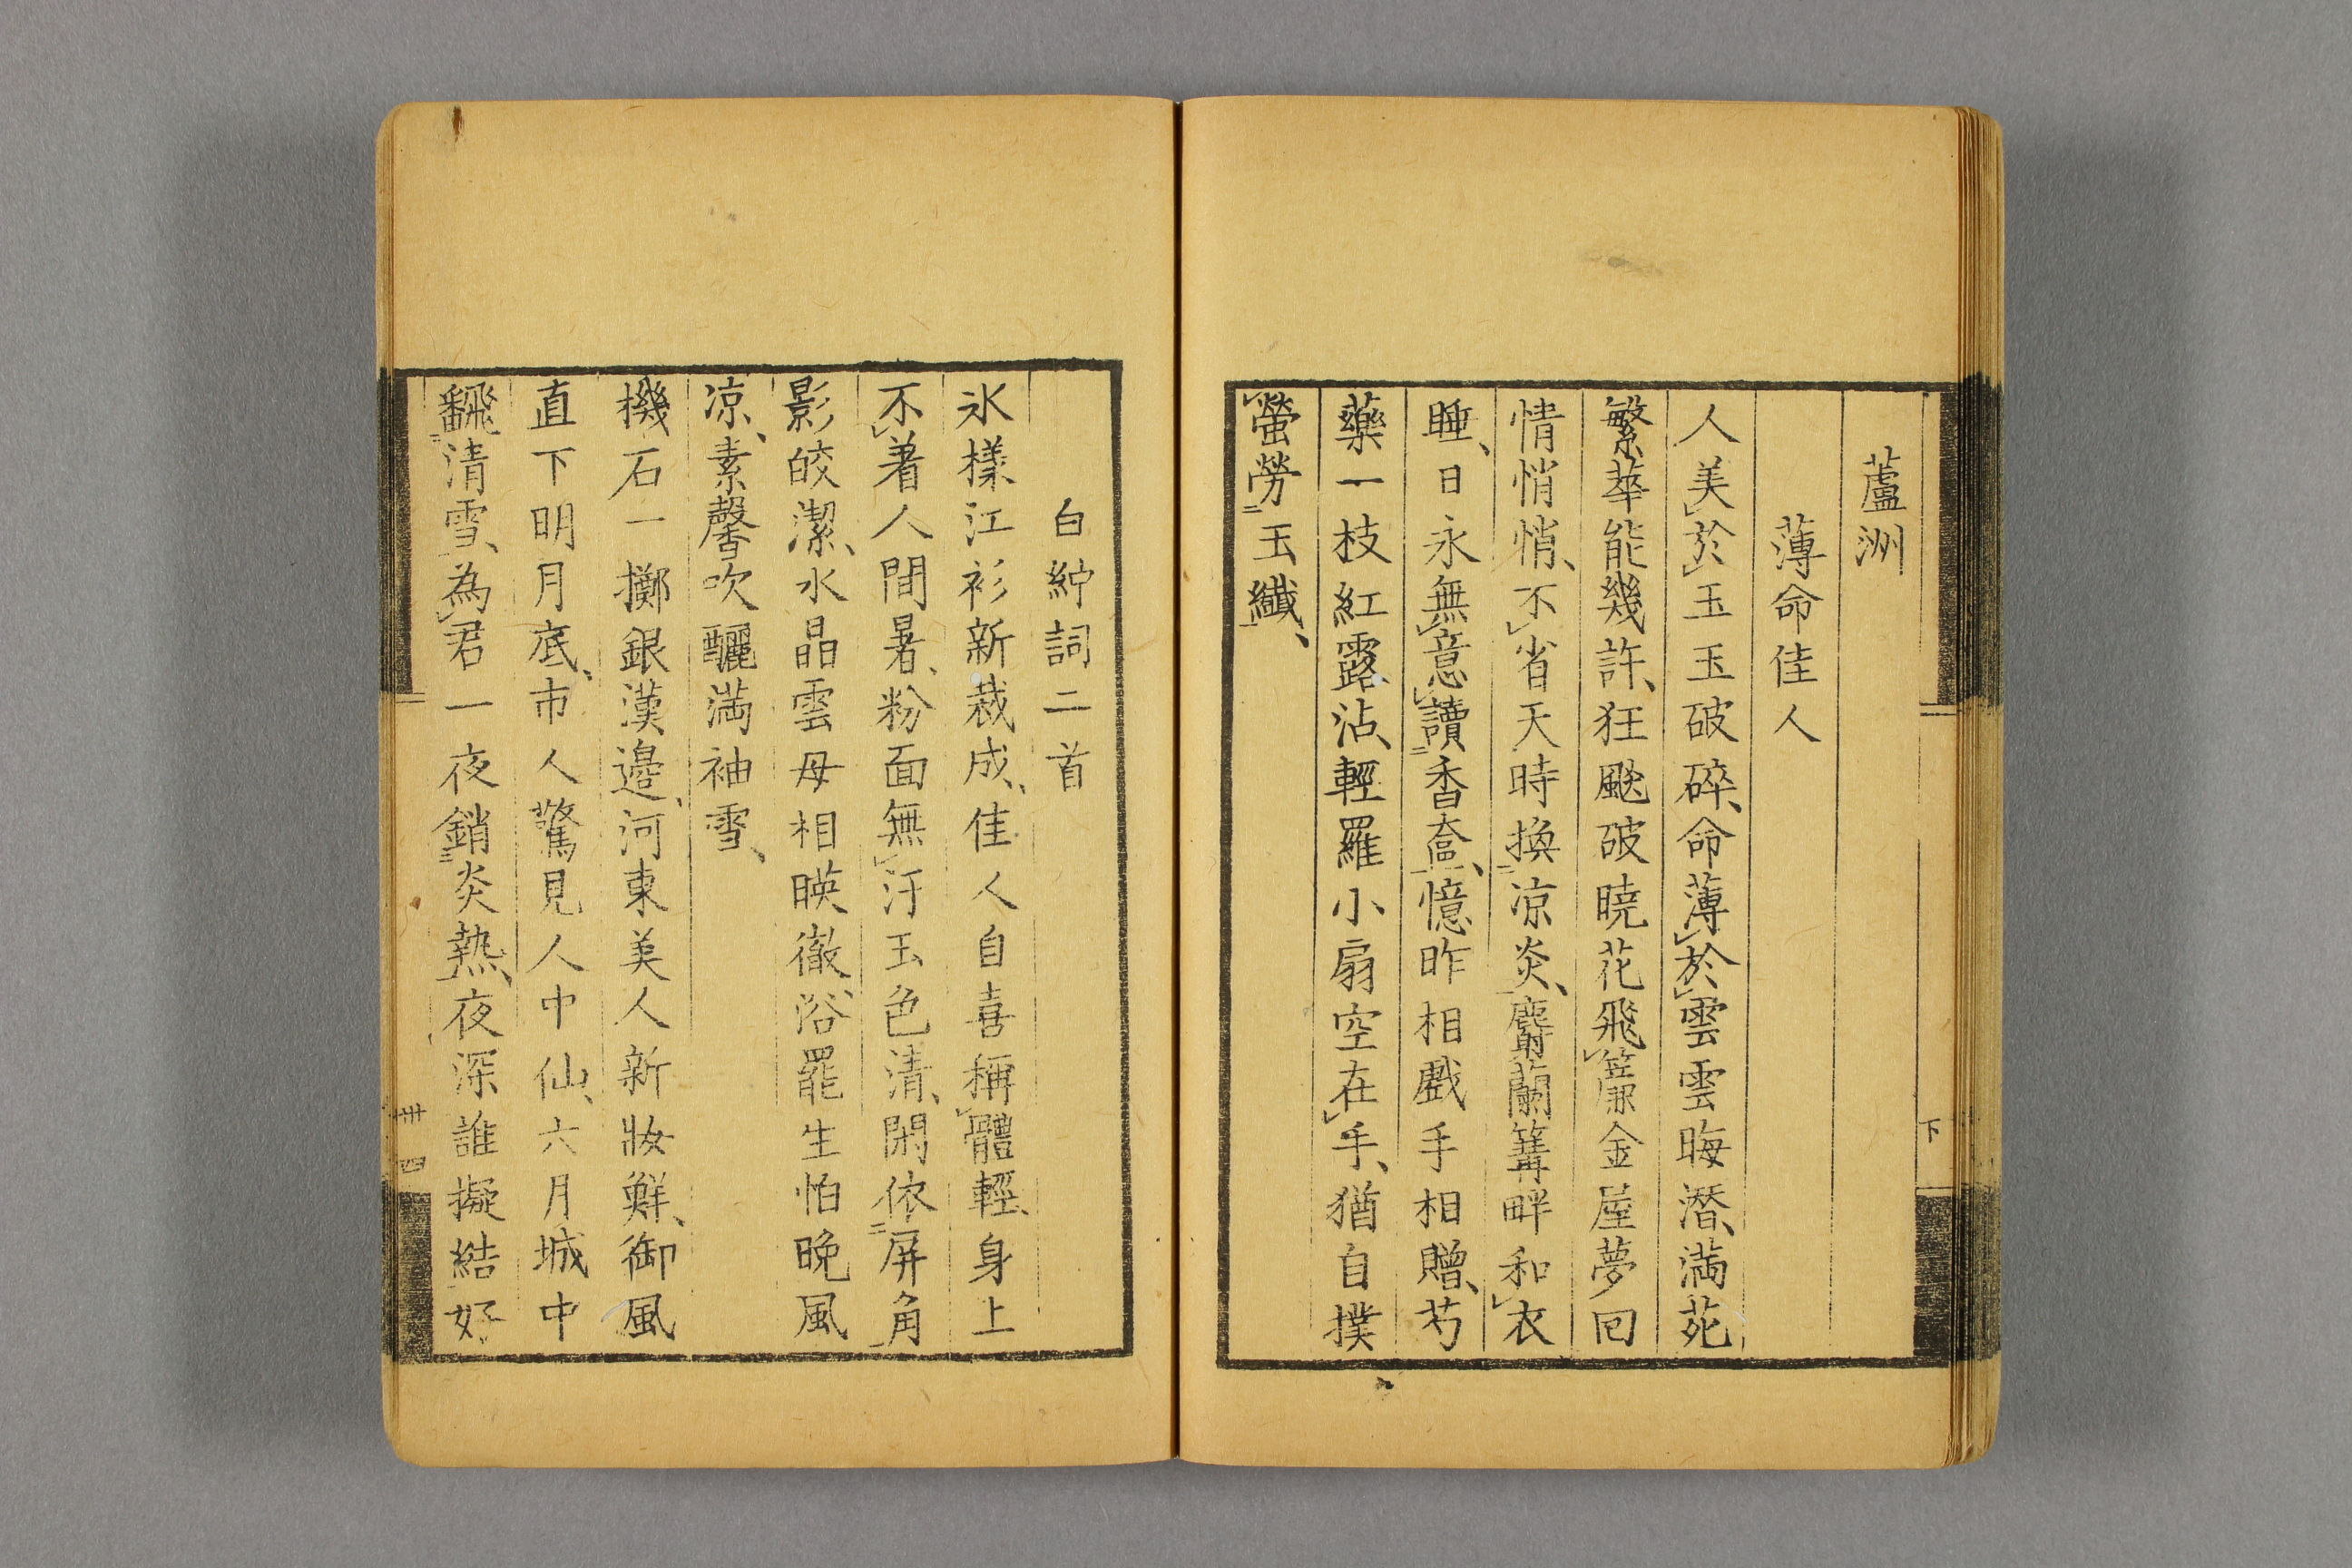 蘆洲
薄命佳人
人美於玉玉破碎、命薄於雲雲晦潛、滿苑
繁華能幾許、狂颷破曉花飛簾金屋夢回
情悄悄、不省天時換凉炎、麝蘭篝畔和衣
睡、日永無意讀香奩、憶昨相戲手相贈、芍
藥一枝紅露沾、輕羅小扇空在手、猶自撲
螢勞玉纖、
下
白紵詞二首
氷樣江衫新裁成、佳人自喜稱體輕、身上
不著人間暑、粉面無汗玉色清、閑依屏角
影皎潔、水晶雲母相暎徹、浴罷生怕晚風
凉、素馨吹釃滿袖雪、
機石一擲銀漢邊、河東美人新妝鮮、御風
直下明月底、市人驚見人中仙、六月城中
飜清雪、為君一夜銷炎熱、夜深誰擬結好
卅四